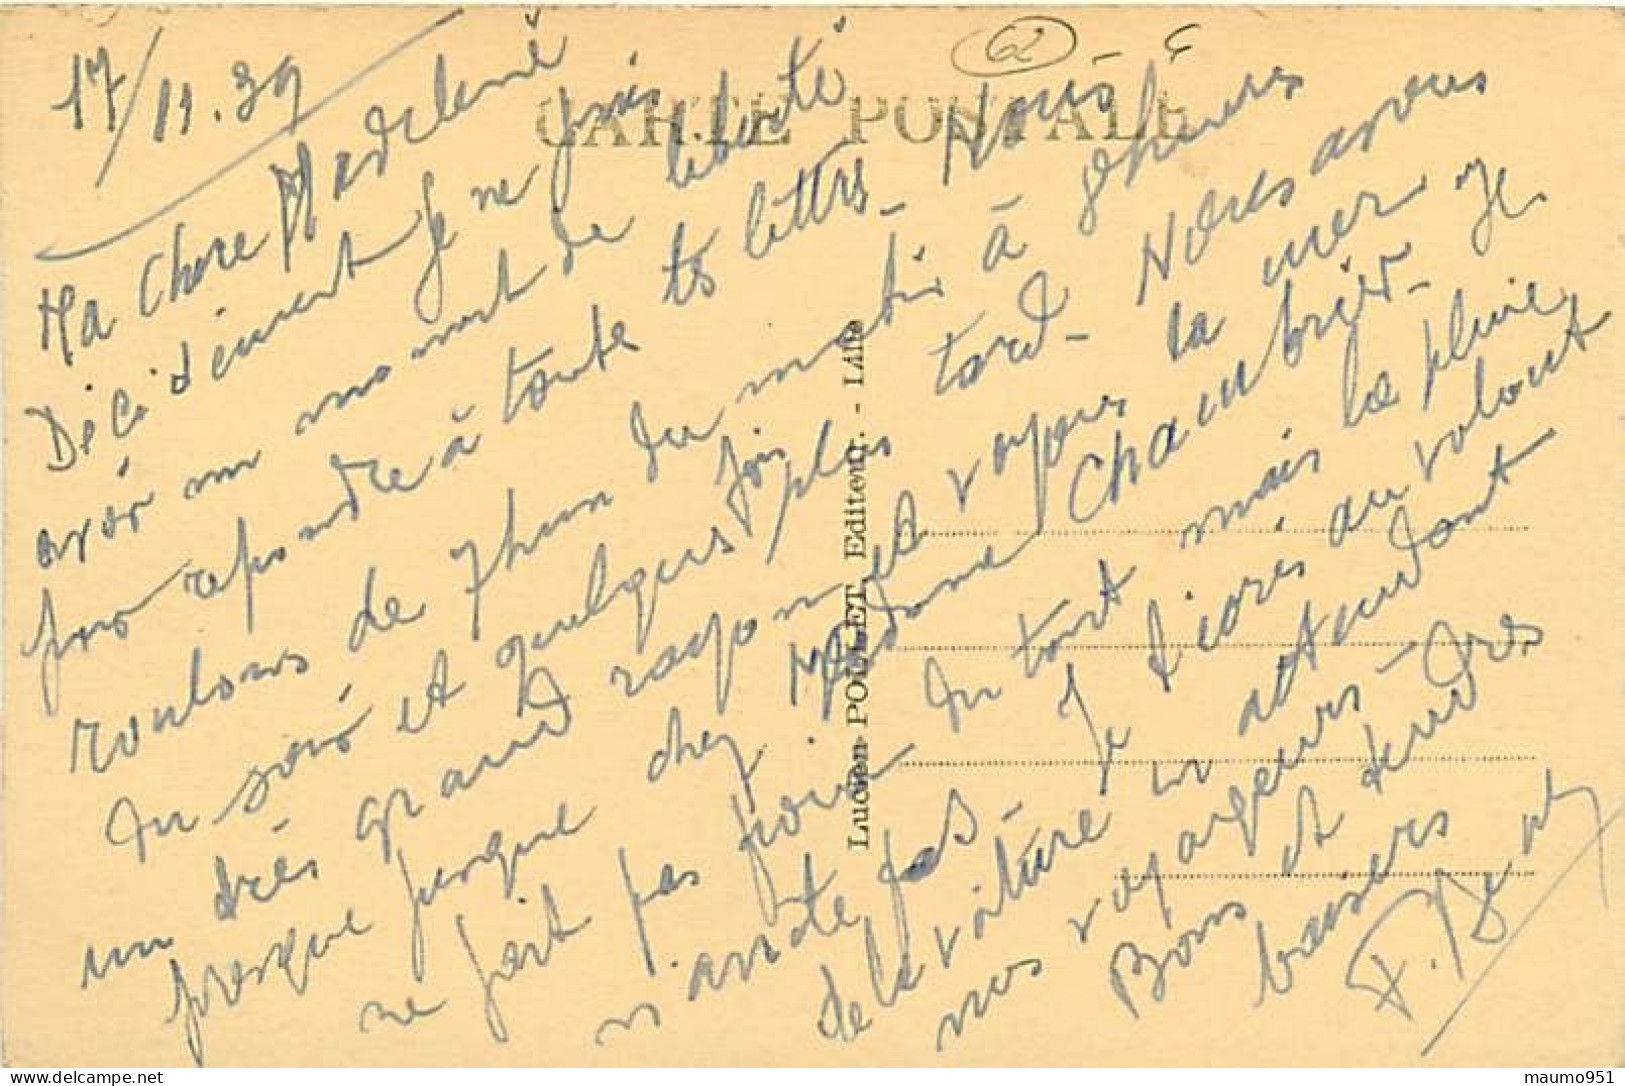 62
CARTE POSTALE
17/11.39
Ma Chere Madeleine
Décidément je ne puis
avoir un moment de liberté
pour repondre à toute ts lettrs. Nous
roulons de 7 hur du matin à 9 heures
du soir et quelques fois plus tard - Nous avons
un très grand rayon et voyons la mer
presque jusque chez Madame Chambrier. Je
ne fait pas froid du tout mais la pluie
n'arrete pas - Je t'ecris au volant
de la voiture en attendant
nos voyageurs -
Bons et tendres
baisers
Lucien POULLET, Editeur. - Lille
maumo951